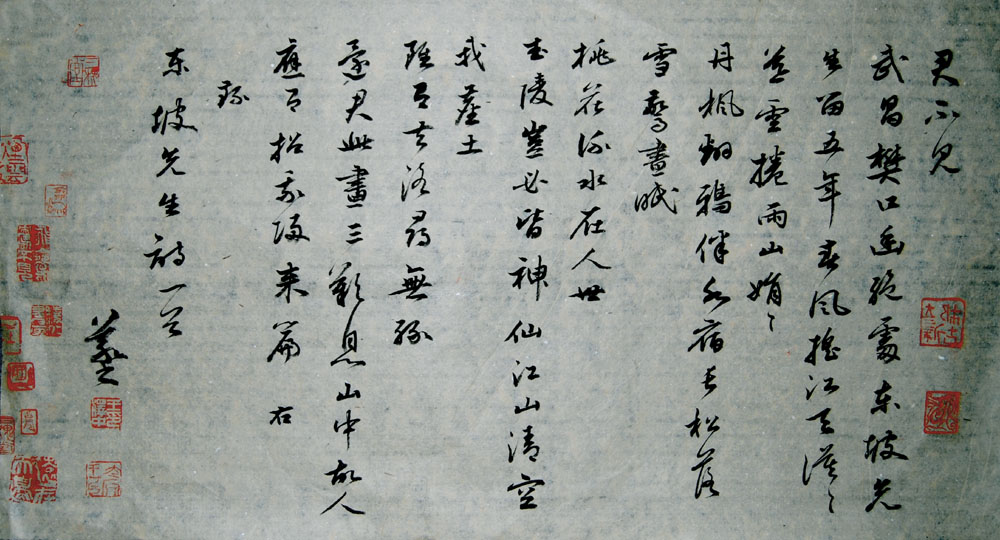 君不見
武昌樊口幽絕處東坡先
生留五年春風搖江天漠〻
暮雲捲雨山娟〻
丹楓翻鴉伴水宿長松落
雪驚晝眠
桃花流水在人世
武陵豈必皆神仙江山清空
我塵土
雖有去路尋無緣
還君此畫三歎息山中故人
應有招我歸來篇 右
錄
東坡先生詩一首